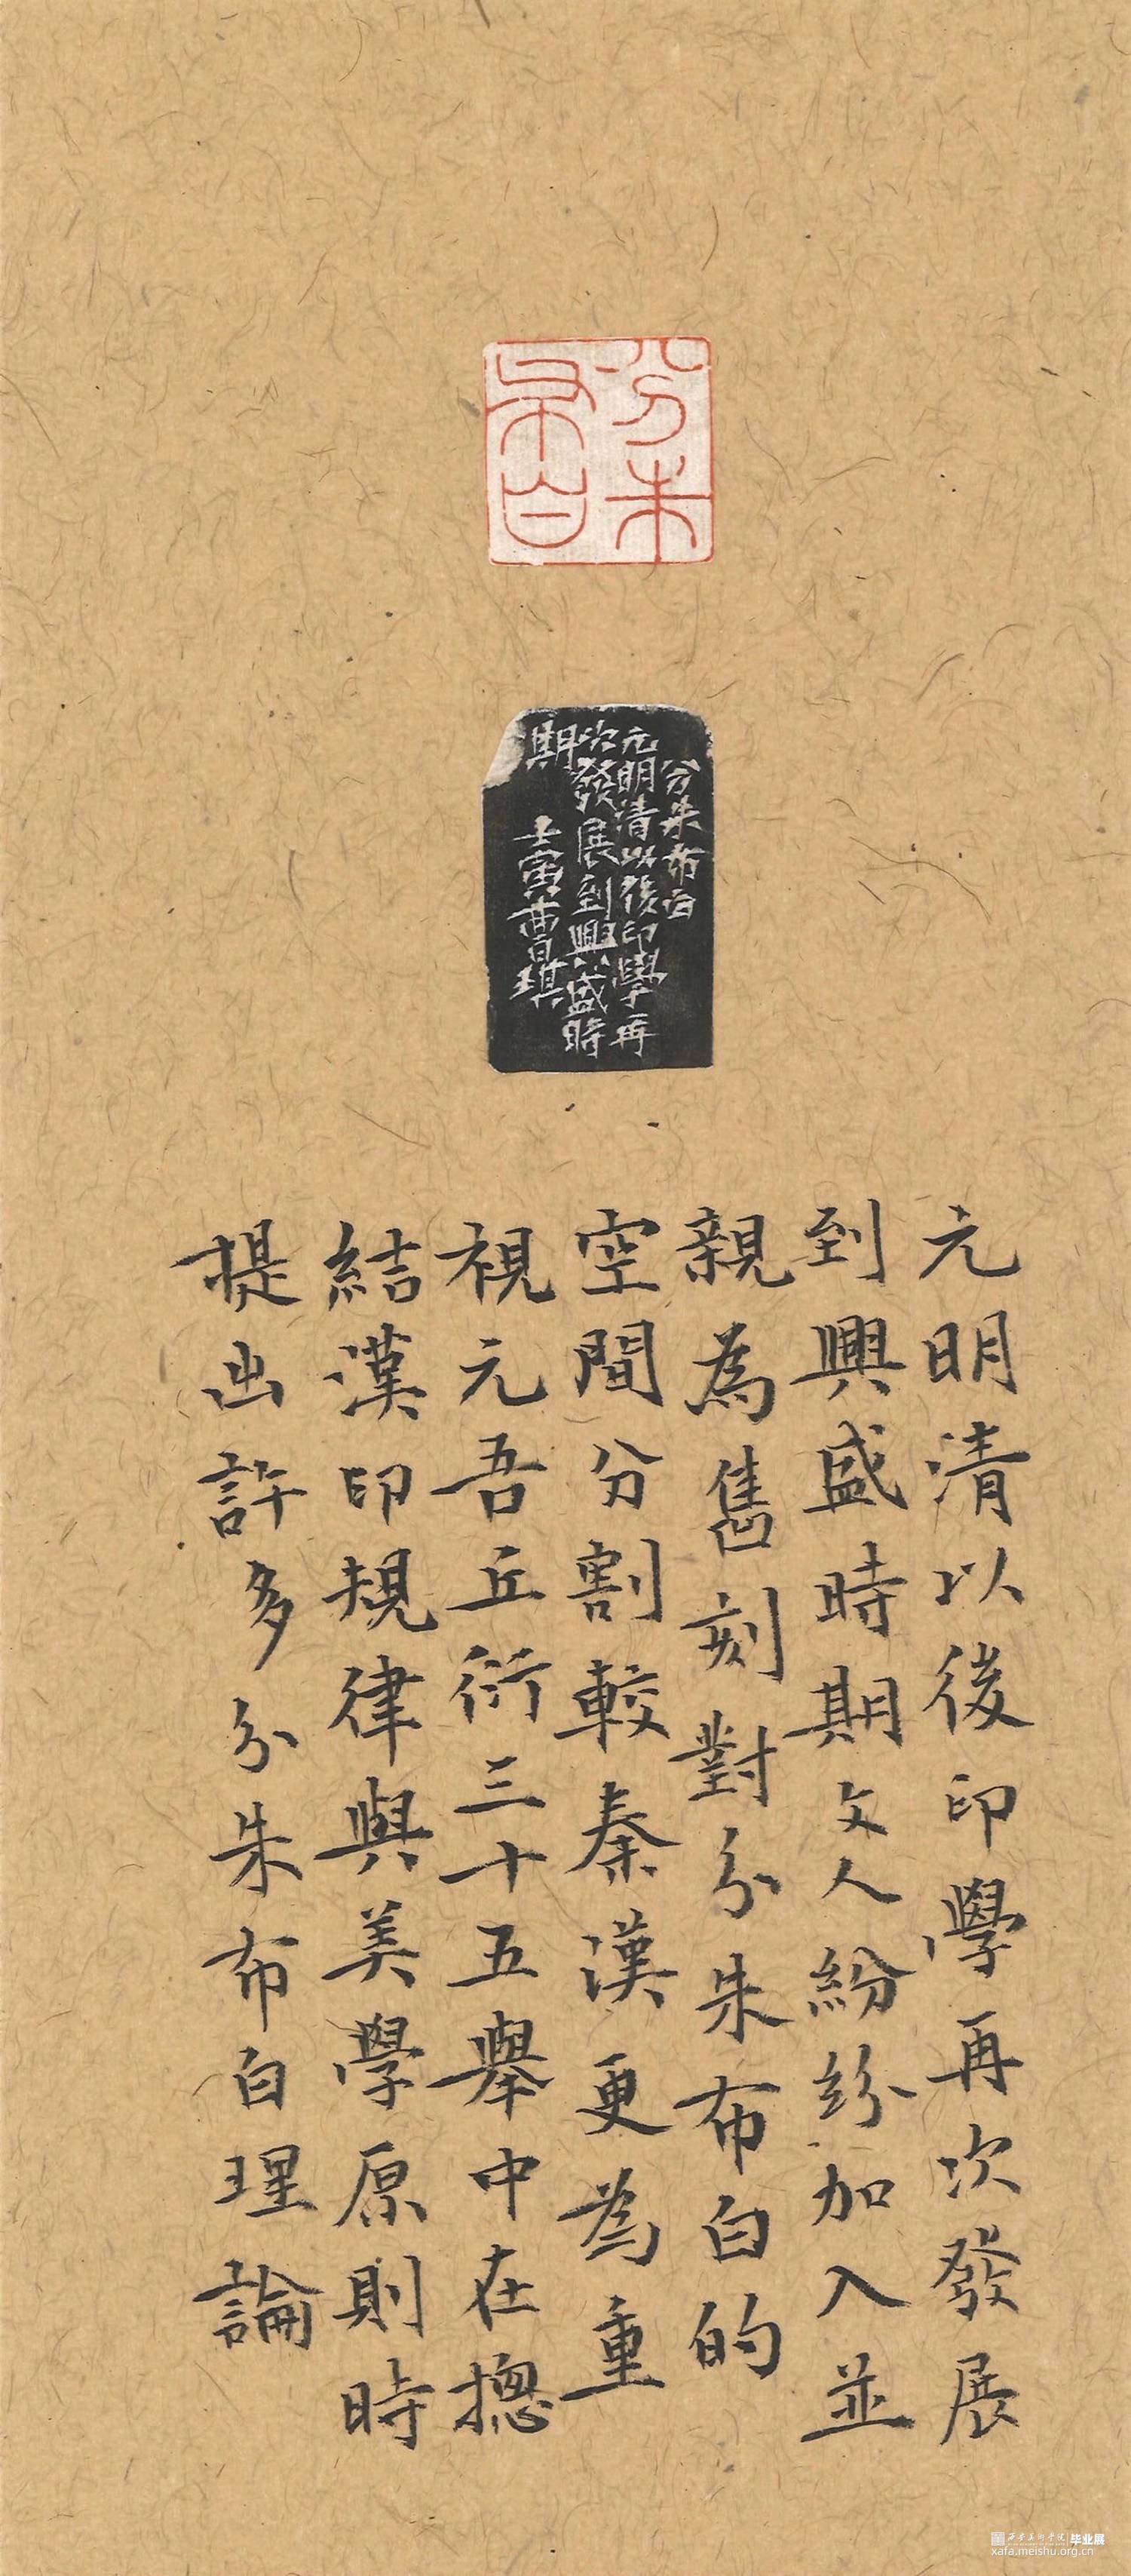 分朱
布白
分朱布白
元明清以後印學再
次發展到興盛時
期
壬寅曹琪
元明清以後印學再次發展
到興盛時期文人紛紛加入並
親為舊刻對分朱布白的
空間分割較秦漢更為重
視元吾丘衍三十五舉中在摠
結漢印規律與美學原則時
提出許多分朱布白理論
西安美術學院 毕业展
xafa.meishu.org.cn